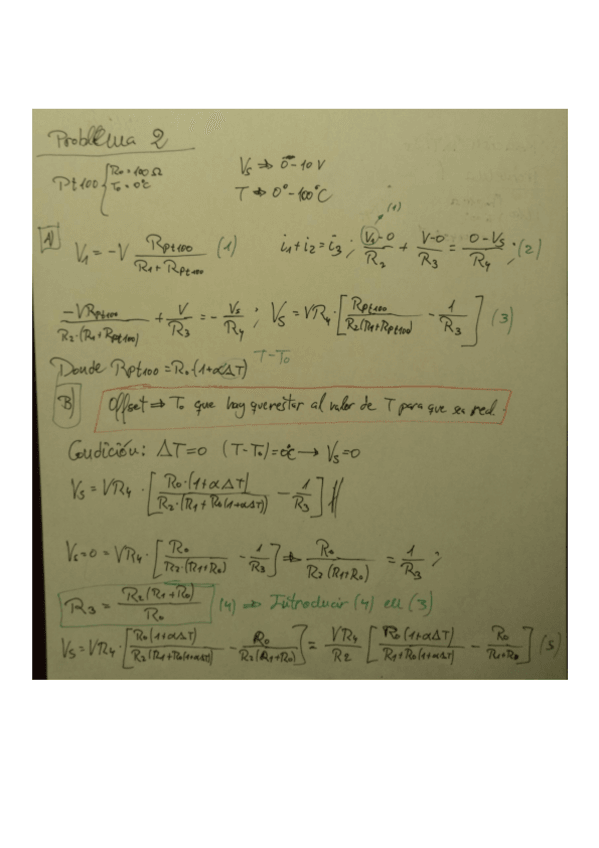 Problema 2
Pt100 { R₀ = 100 Ω
T₀ = 0°C
Vs ⇒ 0 - 10 V
T ⇒ 0° - 100°C
A) V₁ = -V Rpt100 / (R₁ + Rpt100) (1) i₁ + i₂ = i₃ ; (V₁ - 0)/R₂ + (V - 0)/R₃ = (0 - Vs)/R₄ ; (2)
(1)
-V Rpt100 / (R₂·(R₁ + Rpt100)) + V/R₃ = - Vs/R₄ ; Vs = VR₄ · [Rpt100 / (R₂(R₁ + Rpt100)) - 1/R₃] (3)
Donde Rpt100 = R₀·(1+αΔT) T - T₀
B) Offset ⇒ T₀ que hay que restar al valor de T para que sea real.
Condición: ΔT = 0 (T - T₀) = 0°C → Vs = 0
Vs = VR₄ · [R₀·(1+αΔT) / (R₂·(R₁ + R₀(1+αΔT))) - 1/R₃] //
Vs = 0 = VR₄ · [R₀ / (R₂·(R₁+R₀)) - 1/R₃] ⇒ R₀ / (R₂(R₁+R₀)) = 1/R₃ ;
R₃ = R₂(R₁ + R₀) / R₀ (4) ⇒ Introducir (4) en (3)
Vs = VR₄ · [R₀(1+αΔT) / (R₂(R₁+R₀(1+αΔT))) - R₀ / (R₂(R₁+R₀))] = VR₄/R₂ [R₀(1+αΔT) / (R₁+R₀(1+αΔT)) - R₀ / (R₁+R₀)] (5)